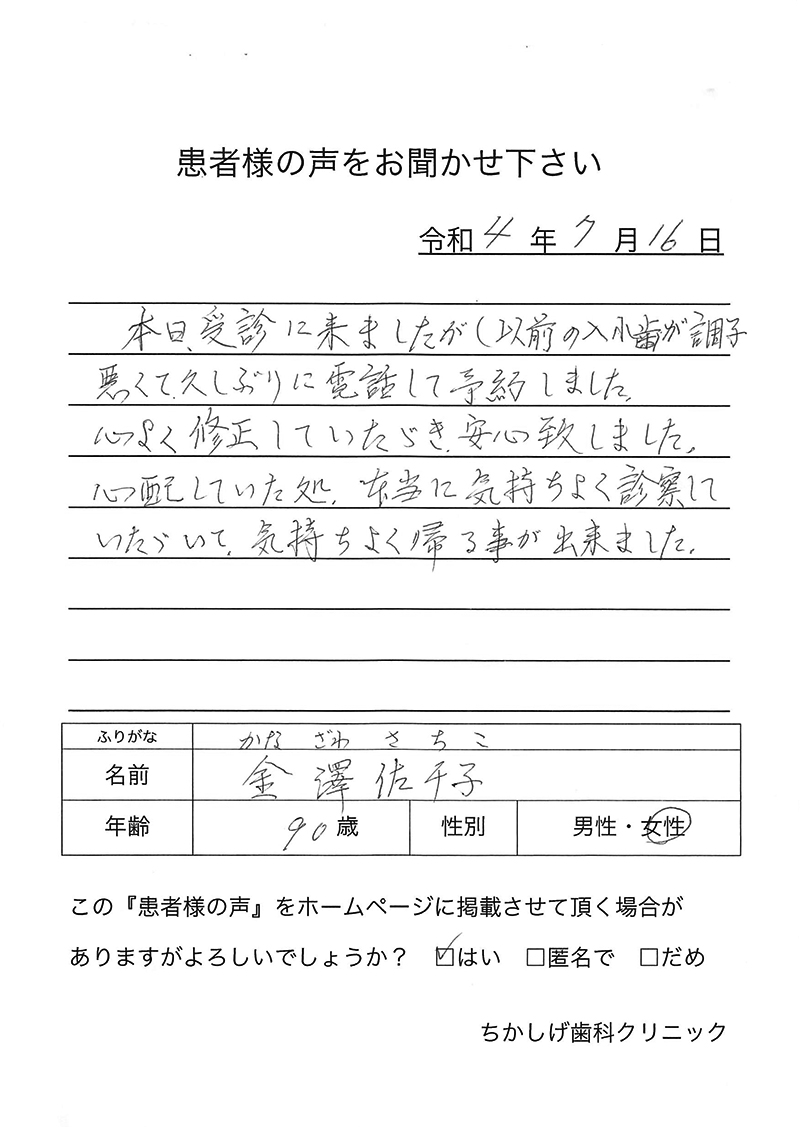 患者様の声をお聞かせ下さい
令和 4 年 7 月 16 日
本日、受診に来ましたが(以前の入れ歯が調子
悪くて、久しぶりに電話して予約しました。
心よく修正していただき、安心致しました。
心配していた処、本当に気持ちよく診察して
いただいて、気持ちよく帰る事が出来ました。
ふりがな かなざわ さちこ
名前 金澤佐千子
年齢 90歳 性別 男性・女性
この『患者様の声』をホームページに掲載させて頂く場合が
ありますがよろしいでしょうか? ☑はい □匿名で □だめ
ちかしげ歯科クリニック